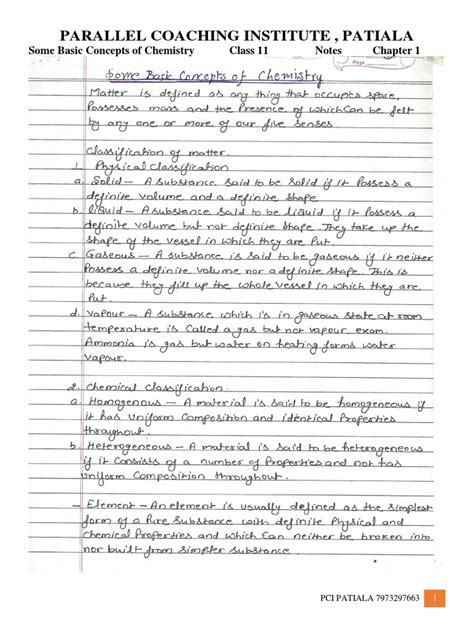 PARALLEL COACHING INSTITUTE , PATIALA
Some Basic Concepts of Chemistry Class 11 Notes Chapter 1
Page
Some Basic Concepts of Chemistry
Matter is defined as any thing that occupies space,
Possesses mass and the Presence of which Can be felt
by any one or more of our five senses
Classification of matter.
1. Physical Classification
a. Solid - A Substance Said to be Solid if it Possess a
definite Volume and a definite Shape
b. liquid - A Substance Said to be liquid if it Possess a
definite Volume but not definite Shape. They take up the
Shape of the Vessel in Which they are Put.
c. Gaseous - A Substance is Said to be gaseous if it neither
Possess a definite Volume nor a definite Shape. This is
because they fill up the whole Vessel in which they are
Put.
d. Vapour - A Substance which is in gaseous State at room
temperature is Called a gas but not vapour. exam.
Ammonia is gas but water on heating forms water
Vapour.
2. Chemical Classification.
a. Homogenous - A material is Said to be homogeneous if
it has Uniform Composition and identical Properties
throughout.
b. Heterogeneous - A material is Said to be heterogeneous
if it Consists of a number of Properties and not has
Uniform Composition throughout.
- Element - An element is usually defined as the Simplest
form of a Pure Substance with definite Physical and
Chemical Properties and which Can neither be broken into
nor built from Simpler Substance
PCI PATIALA 7973297663 1